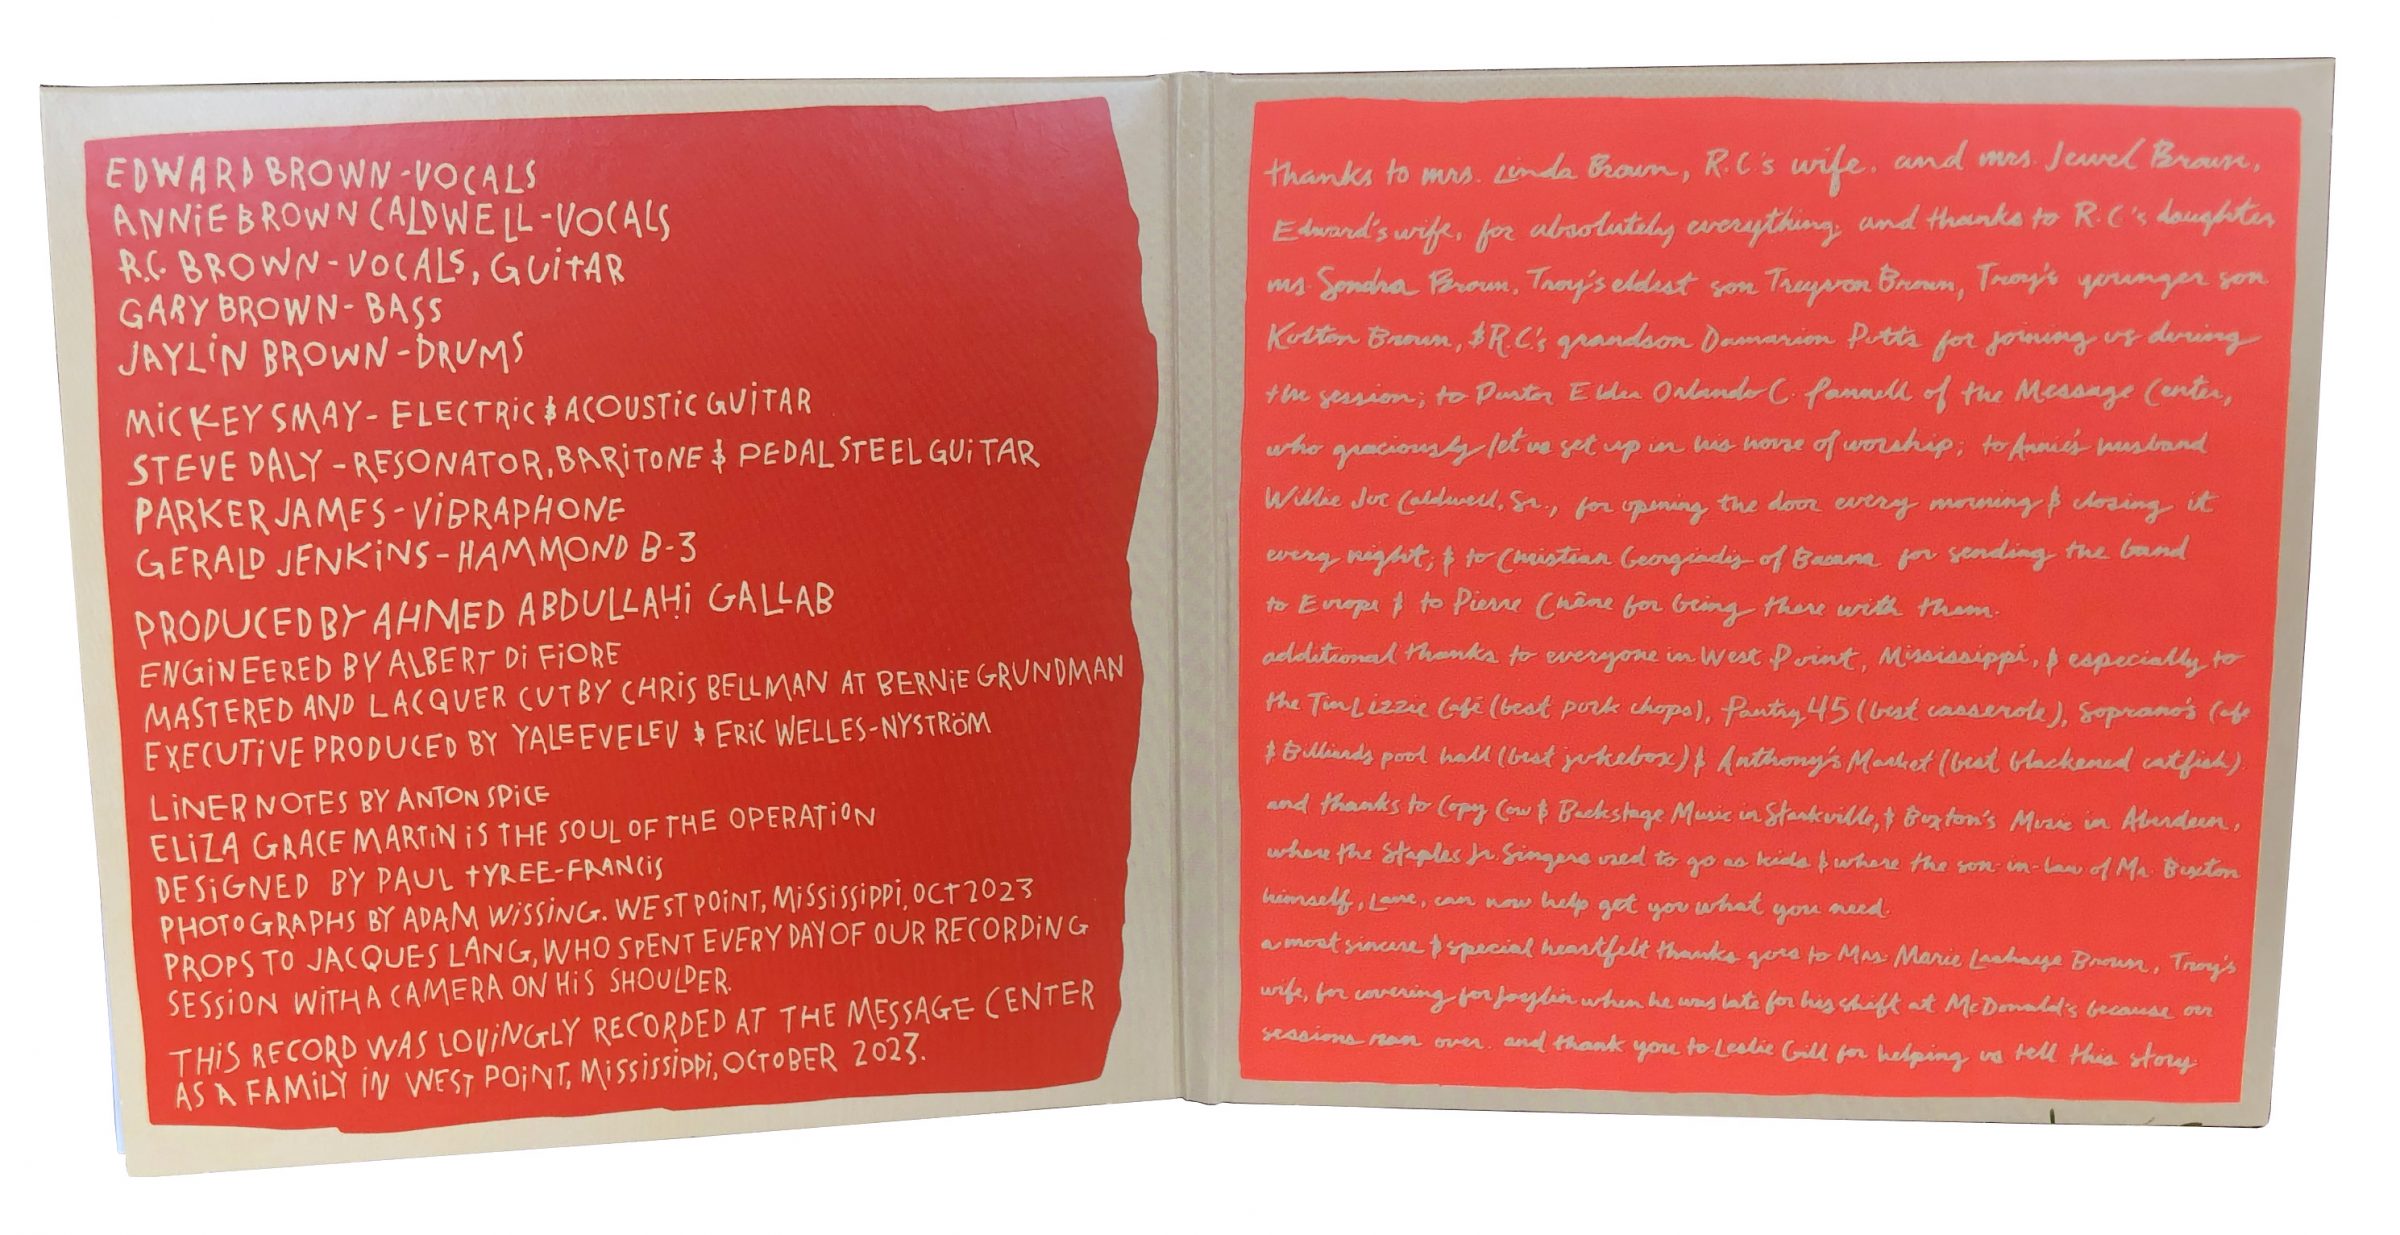 EDWARD BROWN - VOCALS
ANNiE BROWN CALDWELL - VOCALS
R.C. BROWN - VOCALS, GUiTAR
GARY BROWN - BASS
JAYLiN BROWN - DRUMS
MiCKEY SMAY - ELECTRIC & ACOUSTIC GUiTAR
STEVE DALY - RESONATOR, BARiTONE & PEDAL STEEL GUiTAR
PARKER JAMES - ViBRAPHONE
GERALD JENKiNS - HAMMOND B-3
PRODUCED BY AHMED ABDULLAHi GALLAB
ENGiNEERED BY ALBERT Di FiORE
MASTERED AND LACQUER CUT BY CHRiS BELLMAN AT BERNiE GRUNDMAN
EXECUTiVE PRODUCED BY YALE EVELEV & ERiC WELLES-NYSTRÖM
LiNER NOTES BY ANTON SPiCE
ELiZA GRACE MARTiN iS THE SOUL OF THE OPERATiON
DESiGNED BY PAUL TYREE-FRANCiS
PHOTOGRAPHS BY ADAM WiSSiNG. WEST POiNT, MiSSiSSiPPi, OCT 2023
PROPS TO JACQUES LANG, WHO SPENT EVERY DAY OF OUR RECORDiNG
SESSiON WiTH A CAMERA ON HiS SHOULDER.
THiS RECORD WAS LOViNGLY RECORDED AT THE MESSAGE CENTER
AS A FAMiLY iN WEST POiNT, MiSSiSSiPPi, OCTOBER 2023.
thanks to mrs. Linda Brown, R.C.'s wife, and mrs. Jewel Brown,
Edward's wife, for absolutely everything; and thanks to R.C.'s daughter
ms. Sondra Brown, Troy's eldest son Treyvon Brown, Troy's younger son
Kolton Brown, & R.C.'s grandson Damarion Potts for joining us during
the session; to Pastor Elder Orlando C. Pannell of the Message Center,
who graciously let us set up in his house of worship; to Annie's husband
Willie Joe Caldwell, Sr., for opening the door every morning & closing it
every night; & to Christian Georgiadis of Banana for sending the band
to Europe & to Pierre Chêne for being there with them.
additional thanks to everyone in West Point, Mississippi, & especially to
the Tin Lizzie Café (best pork chops), Pantry 45 (best casserole), Soprano's Cafe
& Billiards pool hall (best jukebox) & Anthony's Market (best blackened catfish)
and thanks to Copy Cow & Backstage Music in Starkville, & Buxton's Music in Aberdeen,
where the Staples Jr. Singers used to go as kids & where the son-in-law of Mr. Buxton
himself, Lane, can now help get you what you need.
a most sincere & special heartfelt thanks goes to Mrs. Marie Brown, Troy's
wife, for covering for Jaylin when he was late for his shift at McDonald's because our
sessions ran over. and thank you to Leslie Gill for helping us tell this story